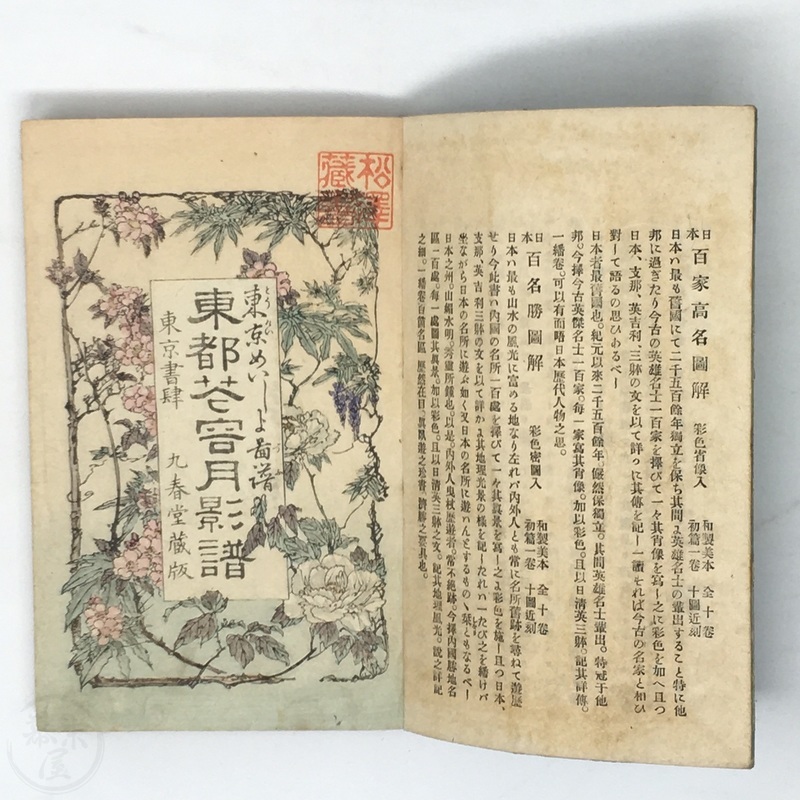 日本 百家高名圖解 彩色肖像入 和製美本 全十卷 初篇一卷 十圖近刻
日本ハ最も舊國にて二千五百餘年獨立を保ち其間よ英雄名士の輩出すること特に他
邦に過ぎたり今古の英雄名士一百家を擇びて一々其肖像を寫し之に彩色を加へ且つ
日本、支那、英吉利、三躰の文を以て詳らに其傳を記し一繙それば今古の名家と相ひ
對して語るの思ひあるべし
日本者最舊國也。紀元以來二千五百餘年。儼然保獨立。其間英雄名士輩出。特冠于他
邦。今擇今古英傑名士一百家。每一家寫其肖像。加以彩色。且以日清英三躰。記其詳傳。
一繙卷。可以有面晤日本歷代人物之思。
日本 百名勝圖解 彩色密圖入 和製美本 全十卷 初篇一卷 十圖近刻
日本ハ最も山水の風光に富める地なり左れバ内外人とも常に名所舊跡を尋ねて遊歷
せり今此書ハ内國の名所一百處を擇びて一々其眞景を寫し之よ彩色を施し且つ日本、
支那、英吉利三躰の文を以て詳かよ其地理光景の樣を記したれハ一たび之を繙けバ
坐ながら日本の名所に遊ぶ如く又日本の名所に遊ハんとするものゝ栞ともなるべし
日本之州。山媚水明。秀靈所鍾也。以是。内外人曳杖歷遊者。常不絕跡。今擇内國勝地名
區一百處。每一處圖其眞景。加以彩色。且以日清英三躰之文。記其地理風光。說之詳記
之細。一繙卷百箇名區 歷然在目。
松澤
藏
東京めいしよ圖譜
東都花容月影譜
東京書肆 九春堂藏版